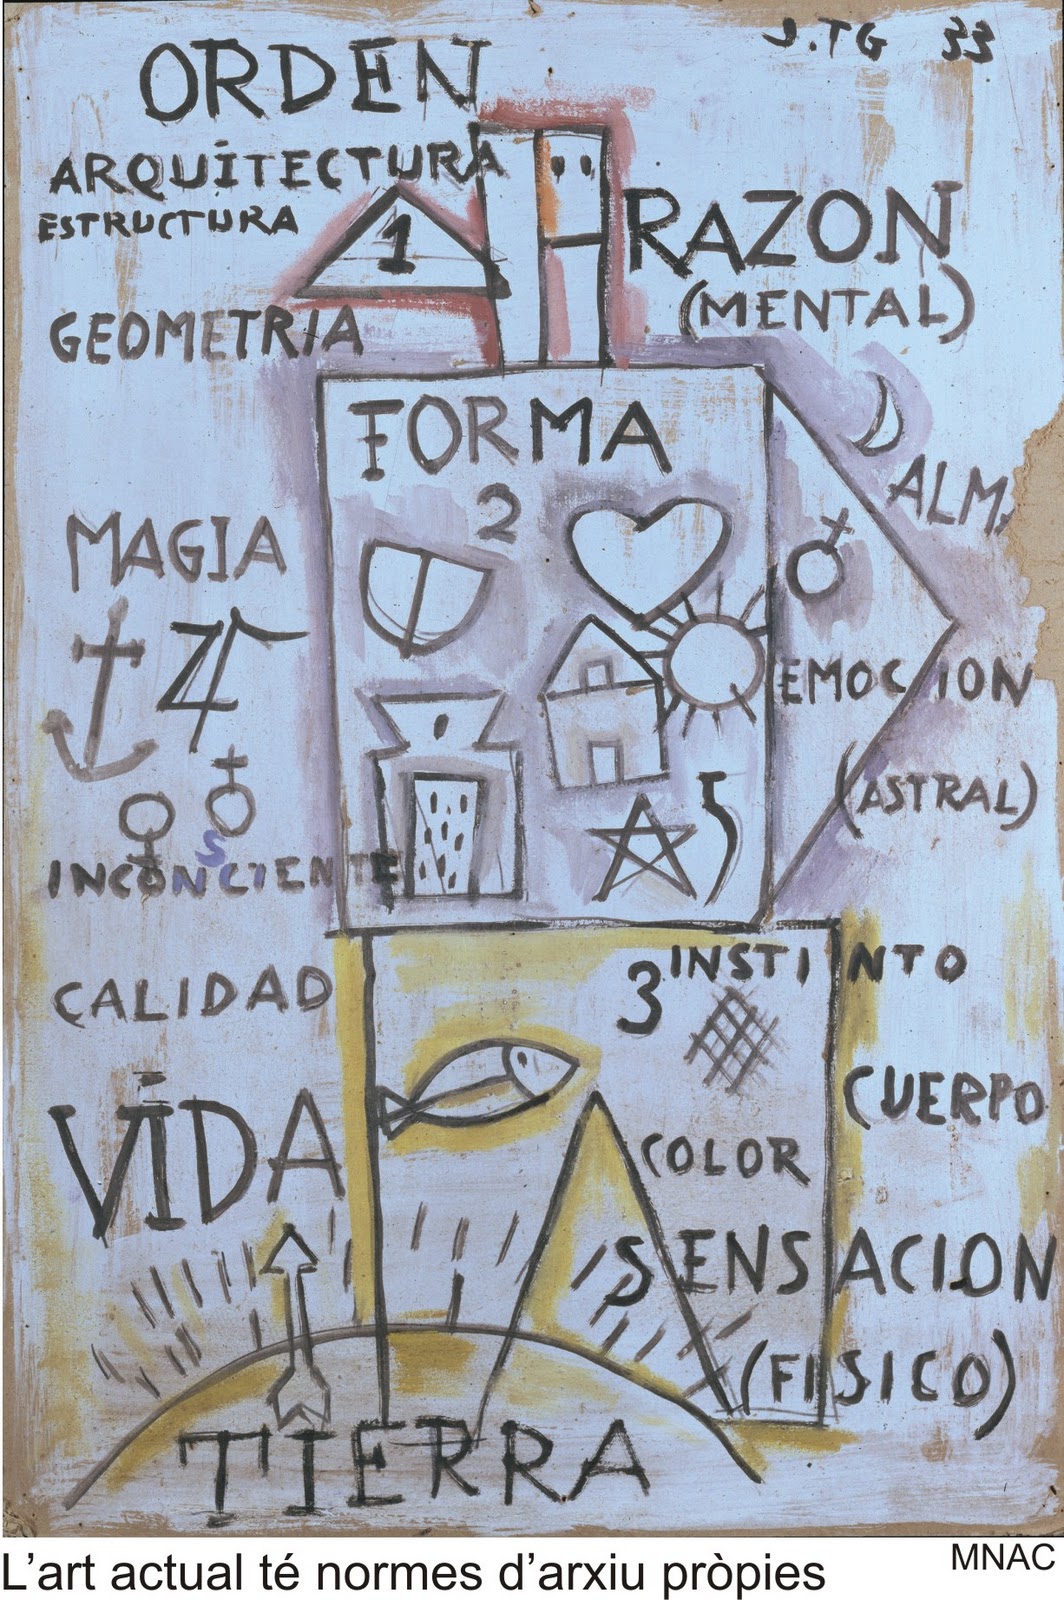 J.TG 33
ORDEN
ARQUITECTURA
ESTRUCTURA
1
RAZON
(MENTAL)
GEOMETRIA
FORMA
2
ALM
MAGIA
EMOCION
(ASTRAL)
5
INCONSCIENTE
3 INSTINTO
CALIDAD
CUERPO
VIDA
COLOR
SENSACION
(FISICO)
TIERRA
MNAC
L'art actual té normes d'arxiu pròpies